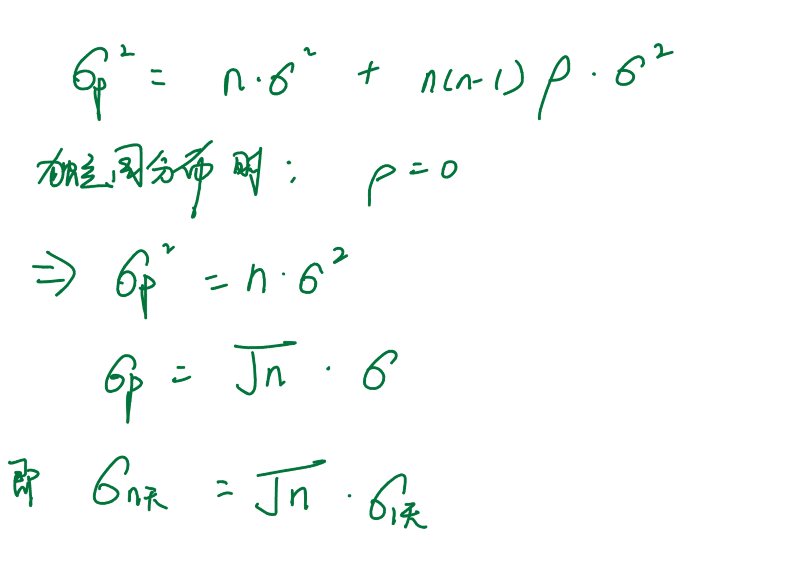 σp² = n·σ² + n(n-1)ρ·σ²
独立同分布时: ρ=0
⇒ σp² = n·σ²
σp = √n · σ
即 σn天 = √n · σ1天